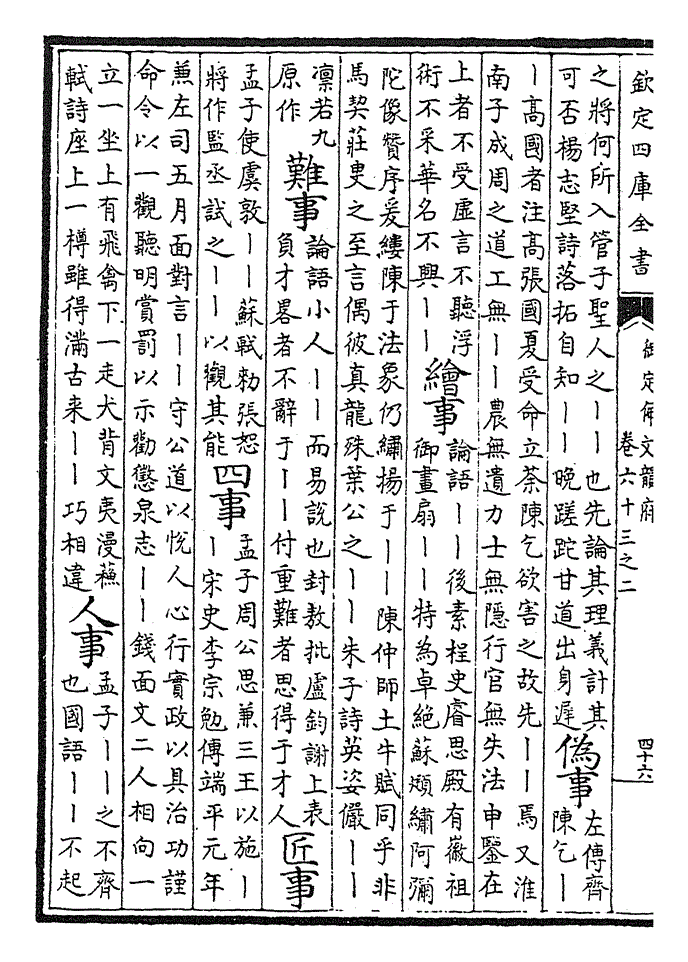 欽定四庫全書
御定佩文韻府
卷六十三之二
四十六
之將何所入管子聖人之丨丨也先論其理義計其
可否楊志堅詩落拓自知丨丨晚蹉跎甘道出身遲
偽事
左傳齊
陳乞丨
丨高國者注高張國夏受命立荼陳乞欲害之故先丨丨焉又淮
南子成周之道工無丨丨農無遺力士無隱行官無失法申鑒在
上者不受虛言不聽浮
術不采華名不興丨丨
繪事
論語丨丨後素桯史睿思殿有徽祖
御畫扇丨丨特為卓絕蘇頲繡阿彌
陀像贊序爰縷陳于法象仍繡揚于丨丨陳仲師土牛賦同乎非
馬契莊叟之至言偶彼真龍殊葉公之丨丨朱子詩英姿儼丨丨
凜若九
原作
難事
論語小人丨丨而易說也封敖批盧鈞謝上表
負才畧者不辭于丨丨付重難者思得于才人
匠事
孟子使虞敦丨丨蘇軾勑張恕
將作監丞試之丨丨以觀其能
四事
孟子周公思兼三王以施丨
丨宋史李宗勉傳端平元年
兼左司五月面對言丨丨守公道以悅人心行實政以具治功謹
命令以一觀聽明賞罰以示勸懲泉志丨丨錢面文二人相向一
立一坐上有飛禽下一走犬背文夷漫蘇
軾詩座上一樽雖得滿古来丨丨巧相違
人事
孟子丨丨之不齊
也國語丨丨不起